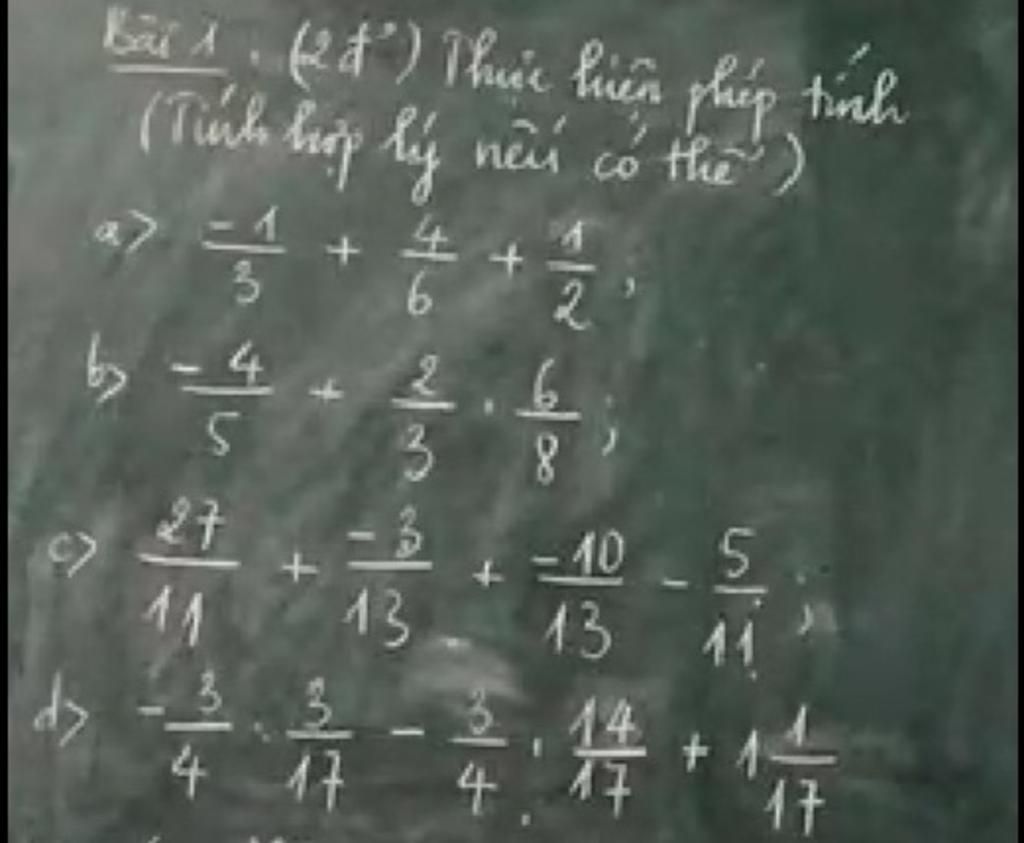 Bài 1. (2đ) Thực hiện phép tính
(Tính hợp lý nếu có thể)
a) -1/3 + 4/6 + 1/2;
b) -4/5 + 2/3 . 6/8;
c) 27/11 + -3/13 + -10/13 - 5/11;
d) -3/4 . 3/17 - 3/4 . 14/17 + 1 1/17